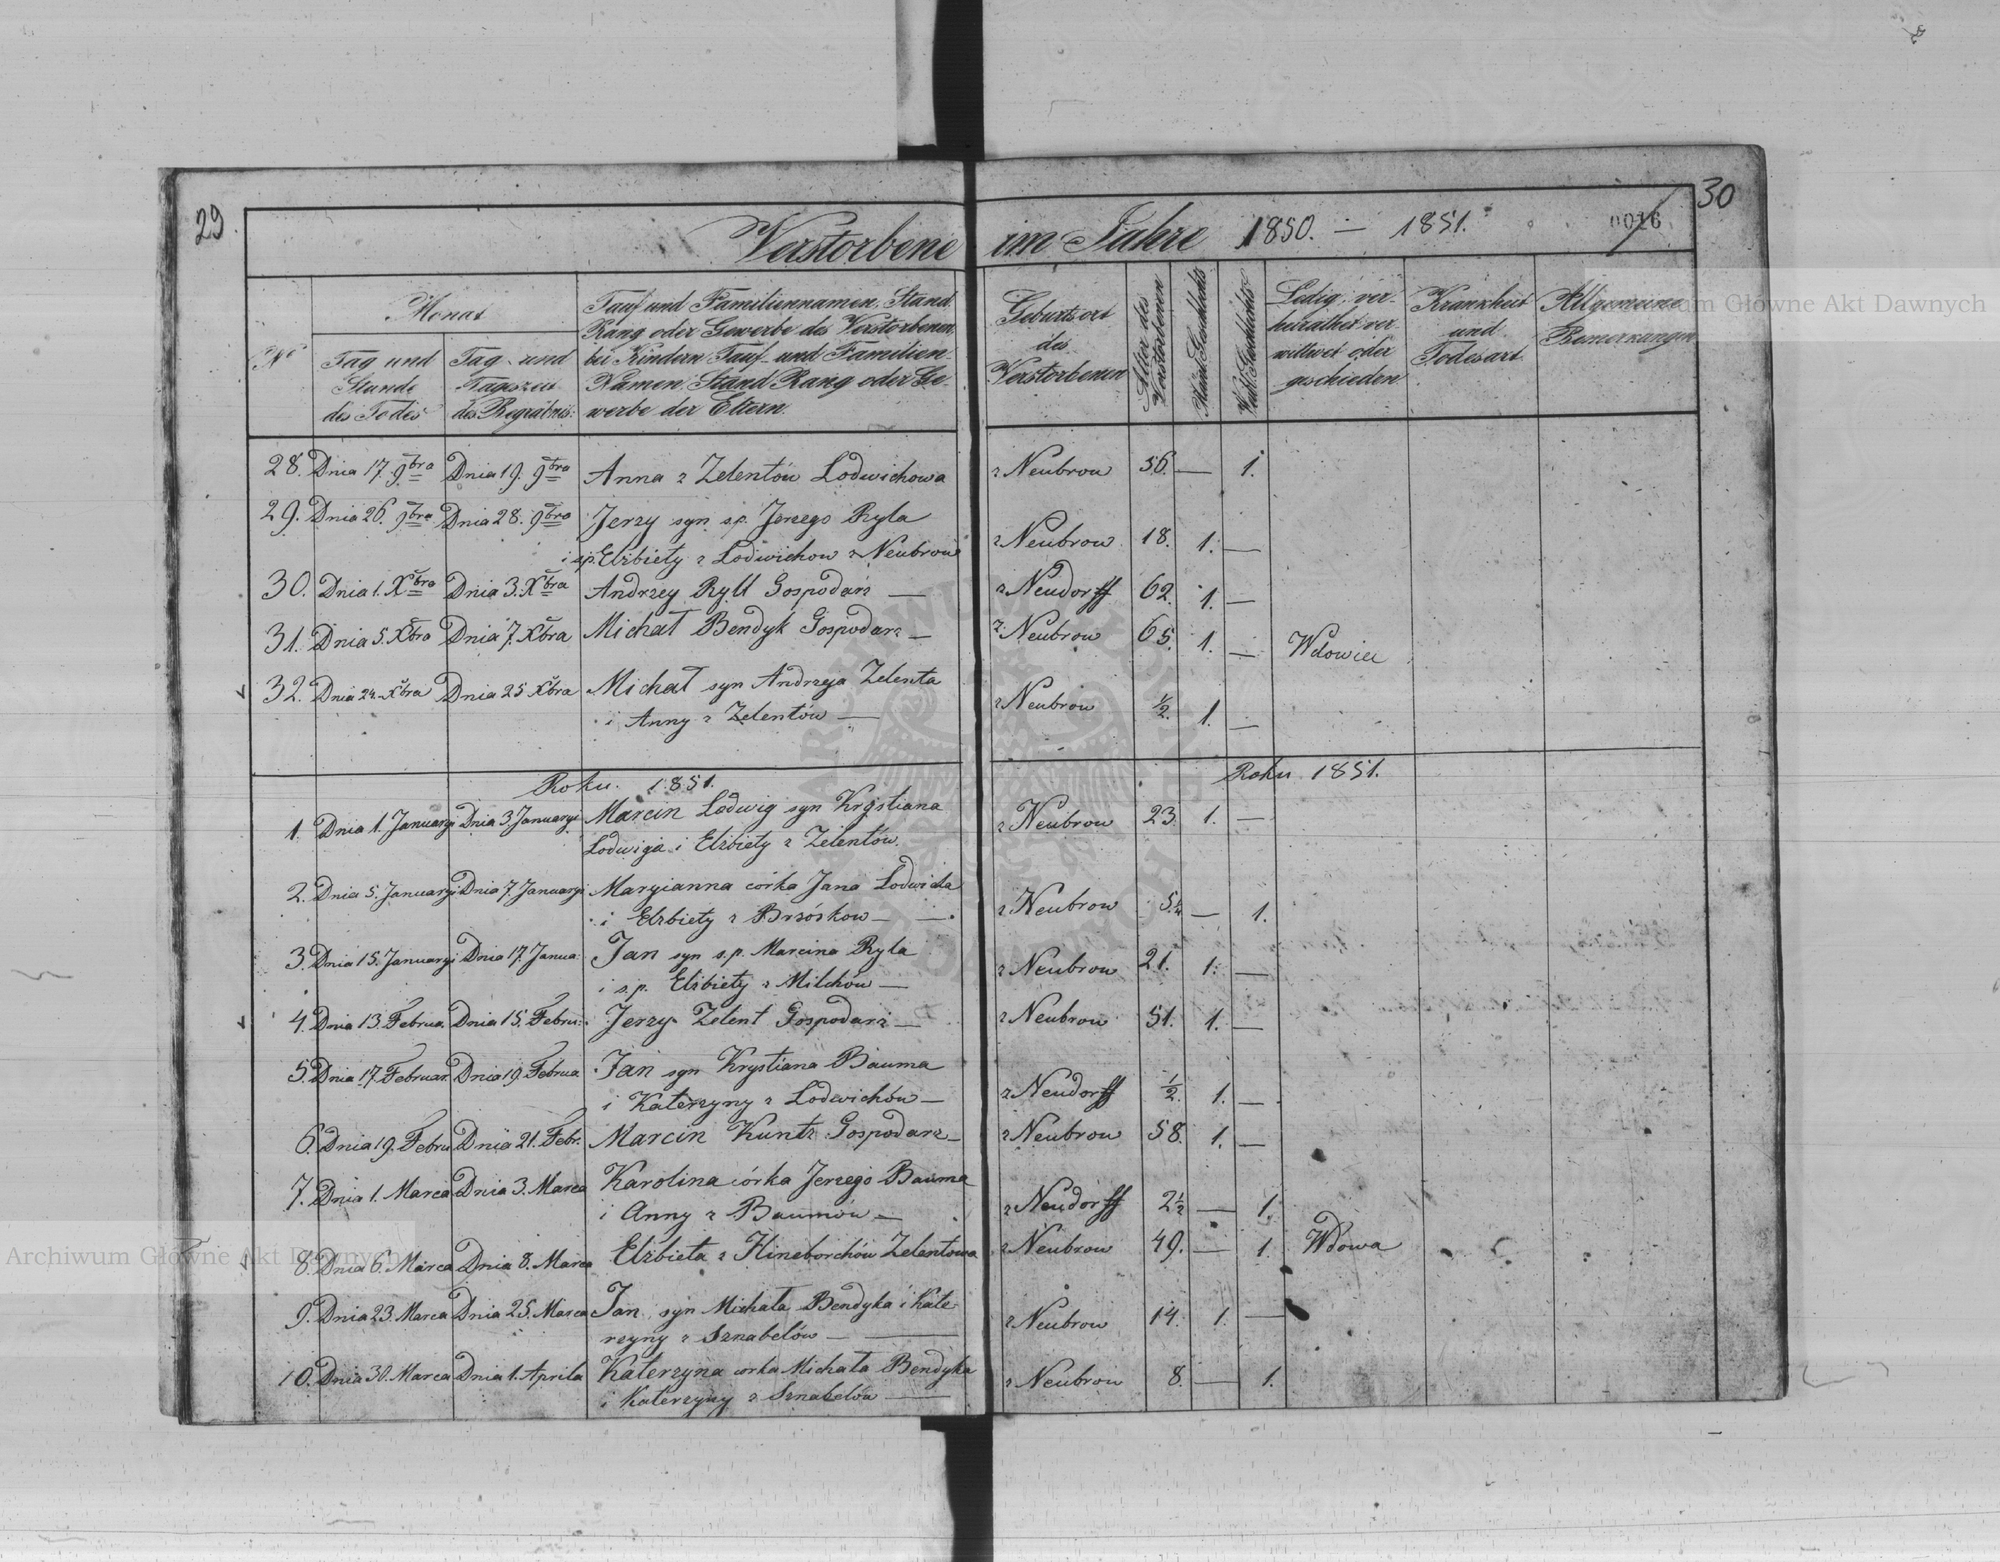 29
30
Verstorbene im Jahre 1850. — 1851.
0016
No
Monat
Tag und Stunde des Todes
Tag und Tageszeit des Begräbnis:
Tauf und Familiennamen, Stand
Rang oder Gewerbe des Verstorbenen
bei Kindern Tauf- und Familien-
Namen, Stand Rang oder Ge-
werbe der Eltern.
Geburtsort
des
Verstorbenen
Alter des Verstorbenen
Mänl. Geschlechts
Weibl. Geschlechts
Ledig, ver-
heirathet ver-
wittwet oder
geschieden
Krankheit
und
Todesart
Allgemeine
Bemerkungen
28. Dnia 17. 9bra Dnia 19. 9bra Anna z Zelentów Lodwichowa z Neubrow 56. — 1.
29. Dnia 26. 9bra Dnia 28. 9bra Jerzy syn s.p. Jerzego Ryla
i s.p. Elzbiety z Lodwichow z Neubrow z Neubrow 18. 1. —
30. Dnia 1. Xbra Dnia 3. Xbra Andrzey Ryll Gospodarz — z Neudorff 62. 1. —
31. Dnia 5. Xbra Dnia 7. Xbra Michał Bendyk Gospodarz — z Neubrow 65. 1. — Wdowiec
32. Dnia 24. Xbra Dnia 25 Xbra Michał syn Andrzeja Zelenta
i Anny z Zelentów — z Neubrow 1/2. 1. —
Roku. 1851. Roku 1851.
1. Dnia 1. Januarji Dnia 3. Januarji Marcin Lodwig syn Krystiana
Lodwiga i Elzbiety z Zelentów. z Neubrow 23 1. —
2. Dnia 5. Januarji Dnia 7. Januarji Maryianna córka Jana Lodwicha
i Elzbiety z Brzósków — z Neubrow 5 1/4 — 1.
3. Dnia 15. Januarji Dnia 17. Janua: Jan syn s.p. Marcina Ryla
i s.p. Elzbiety z Milchów — z Neubrow 21. 1. —
4. Dnia 13. Februa. Dnia 15. Febru: Jerzy Zelent Gospodarz — z Neubrow 51. 1. —
5. Dnia 17. Februar. Dnia 19. Februa Jan syn Krystiana Bauma
i Katerzyny z Lodwichów — z Neudorff 1/2. 1. —
6. Dnia 19. Febru Dnia 21. Febr. Marcin Kuntz Gospodarz — z Neubrow 58. 1. —
7. Dnia 1. Marca Dnia 3. Marca Karolina córka Jerzego Bauma
i Anny z Baumów — z Neudorff 2 1/2 — 1.
8. Dnia 6. Marca Dnia 8. Marca Elzbieta z Hineborchów Zelentowa z Neubrow 49. — 1. Wdowa
9. Dnia 23. Marca Dnia 25. Marca Jan syn Michała Bendyka i Kate
rzyny z Sznabelów — z Neubrow 14. 1. —
10. Dnia 30. Marca Dnia 1. Aprila Katerzyna corka Michała Bendyka
i Katerzyny z Sznabelów — z Neubrow 8. — 1.
Archiwum Główne Akt Dawnych
Archiwum Główne Akt Dawnych